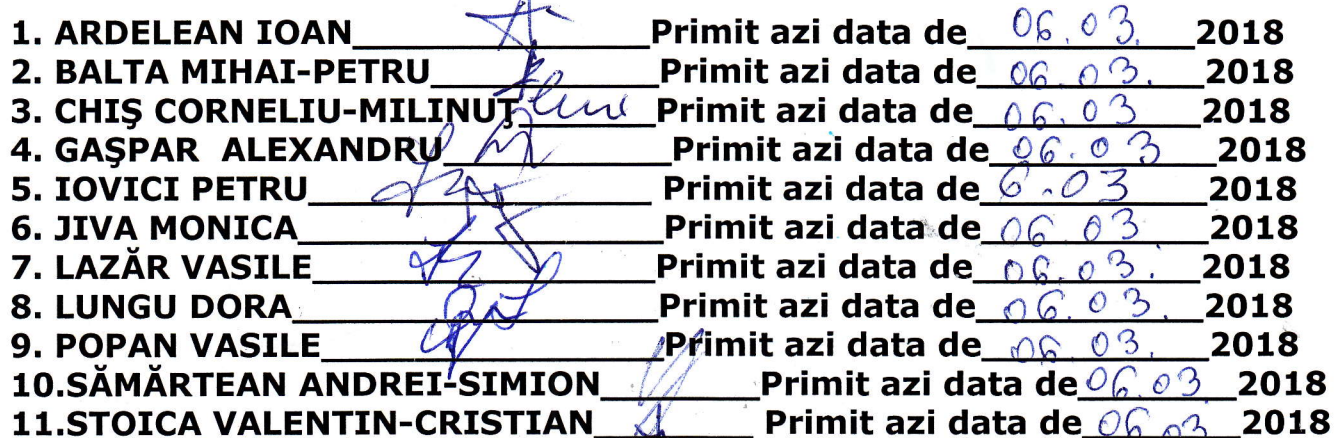 1. ARDELEAN IOAN____________________Primit azi data de 06.03. 2018
2. BALTA MIHAI-PETRU_______________Primit azi data de 06.03. 2018
3. CHIŞ CORNELIU-MILINUŢ__________Primit azi data de 06.03 2018
4. GAŞPAR ALEXANDRU_______________Primit azi data de 06.03 2018
5. IOVICI PETRU_______________________ Primit azi data de 6.03 2018
6. JIVA MONICA________________________Primit azi data de 06.03 2018
7. LAZĂR VASILE_______________________Primit azi data de 06.03. 2018
8. LUNGU DORA________________________Primit azi data de 06.03. 2018
9. POPAN VASILE______________________Primit azi data de 06.03. 2018
10.SĂMĂRTEAN ANDREI-SIMION__________Primit azi data de 06.03 2018
11.STOICA VALENTIN-CRISTIAN__________ Primit azi data de 06.03 2018